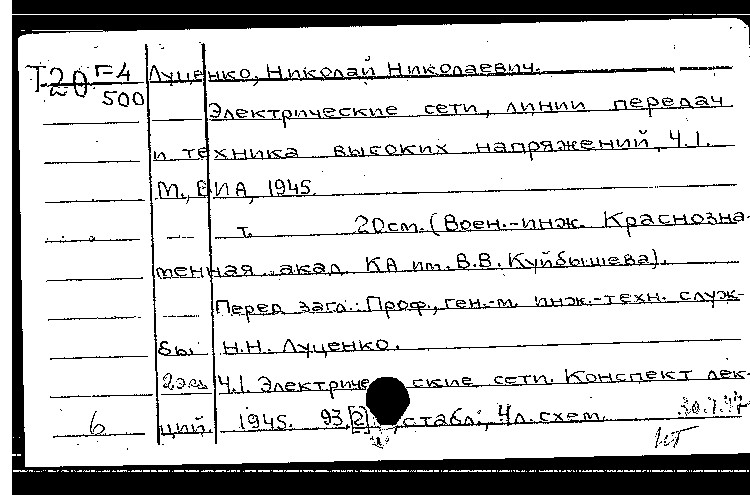 Т20 Г-4 Луценко, Николай Николаевич.
500 Электрические сети, линии передач
и техника высоких напряжений, Ч.1.
М., ВИА, 1945.
т. 20см. (Воен.-инж. Краснозна-
менная акад. КА им. В.В. Куйбышева).
Перед загл.: Проф., ген.-м. инж.-техн. служ-
бы Н.Н. Луценко.
2экз Ч.1. Электрические сети. Конспект лек-
6 ций. 1945. 93,[2] с табл., 4л. схем.